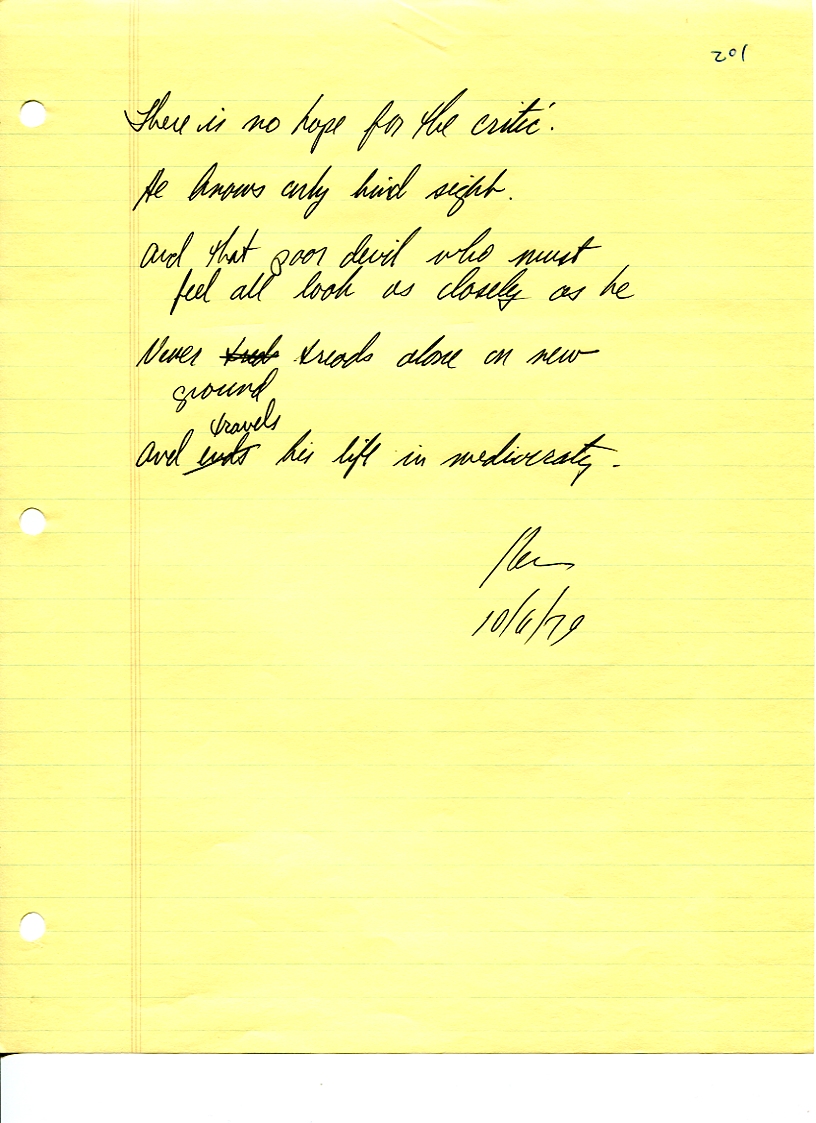 201
There is no hope for the critic.
He knows only hind sight.
And that poor devil who must
feel all look as closely as he
Never treads alone on new
ground
travels
And ends his life in mediocraty.
10/6/79